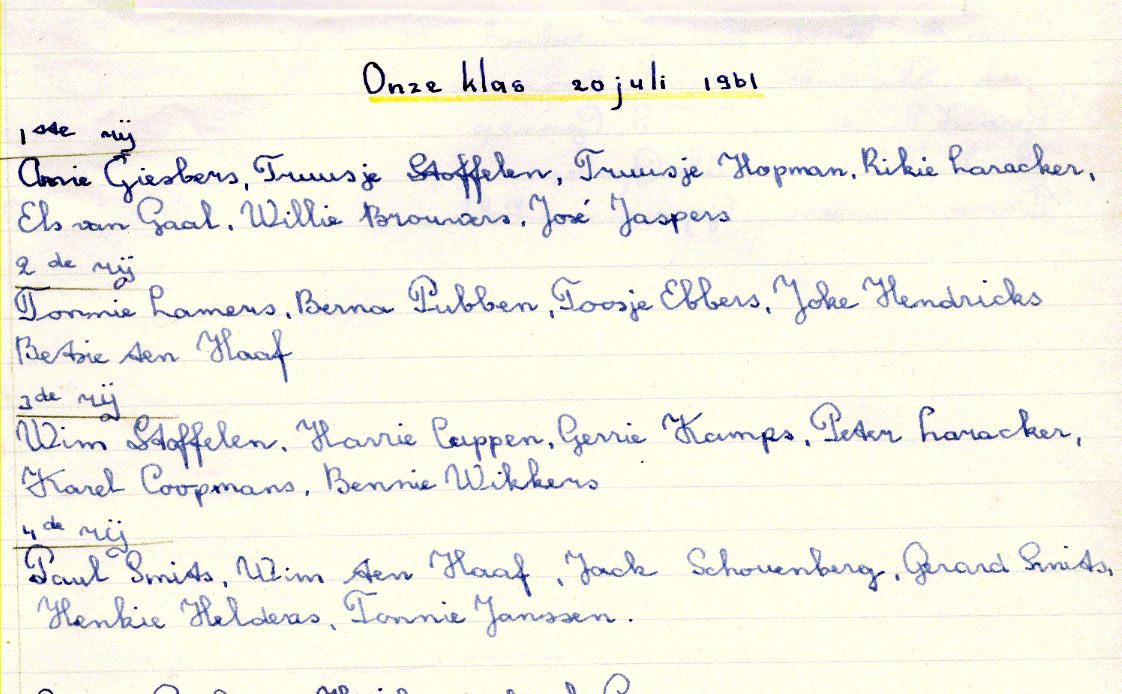 Onze klas 20 juli 1961
1ste rij
Annie Giesbers, Truusje Stoffelen, Truusje Hopman, Rikie Laracker,
Els van Gaal, Willie Brouwers, José Jaspers
2de rij
Tonnie Lamers, Berna Pubben, Toosje Ebbers, Joke Hendricks
Betsie ten Haaf
3de rij
Wim Stoffelen, Harrie Cuppen, Gerrie Kamps, Peter Laracker,
Karel Coopmans, Bennie Wikkers
4de rij
Paul Smits, Wim ten Haaf, Jack Schouenberg, Gerard Smits,
Henkie Helders, Tonnie Janssen.